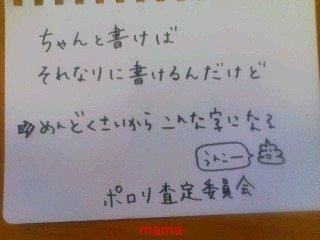 ちゃんと書けば
それなりに書けるんだけど
⇒めんどくさいから こんな字になる
うんこー
ポロリ査定委員会
mama